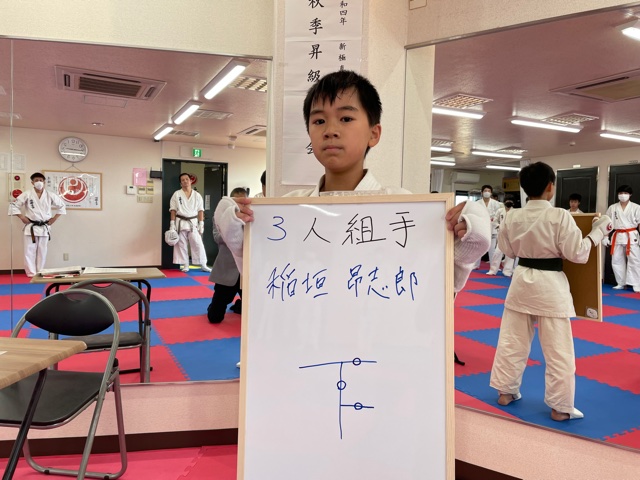 和四年 新極真
秋季昇級
3人組手
稲垣 昂志郎